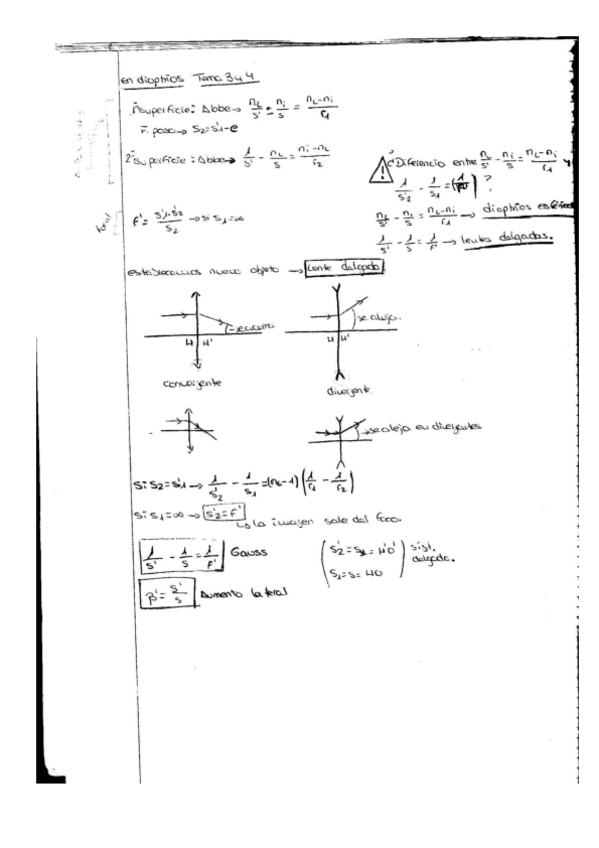 en dioptrios Tema 3 y 4
1ª superficie: Abbe → n_L/s' - n_i/s = n_L-n_i/r_1
F. paso → s_2 = s'_1 - e
2ª superficie: Abbe → 1/s' - n_L/s = n_i-n_L/r_2
¿Diferencia entre n_L/s' - n_i/s = n_L-n_i/r_1 y
1/s'_2 - 1/s_1 = ?
f' = s'_1·s'_2/s_2 → si s_1 = ∞
n_L/s' - n_i/s = n_L-n_i/r_1 → dioptrios
1/s' - 1/s = 1/f' → lentes delgadas.
establecemos nuevo objeto → Lente delgada
se acerca
se aleja
H H'
H H'
convergente
divergente
se aleja en divergentes
Si s_2 = s'_1 → 1/s'_2 - 1/s_1 = (n_L-1) (1/r_1 - 1/r_2)
si s_1 = ∞ → s'_2 = f'
↳ la imagen sale del foco.
1/s' - 1/s = 1/f' Gauss
s_1 = s = HO
sist. delgado.
β' = s'/s Aumento lateral